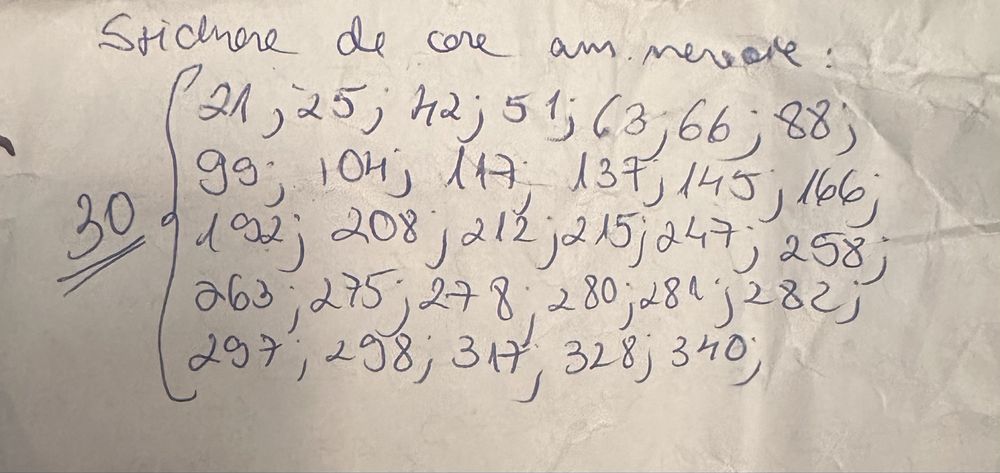 Stichere de care am nevoie:
21; 25; 42; 51; 63; 66; 88;
99; 104; 117; 137; 145; 166;
30 192; 208; 212; 215; 247; 258;
263; 275; 278; 280; 281; 282;
297; 298; 317; 328; 340;